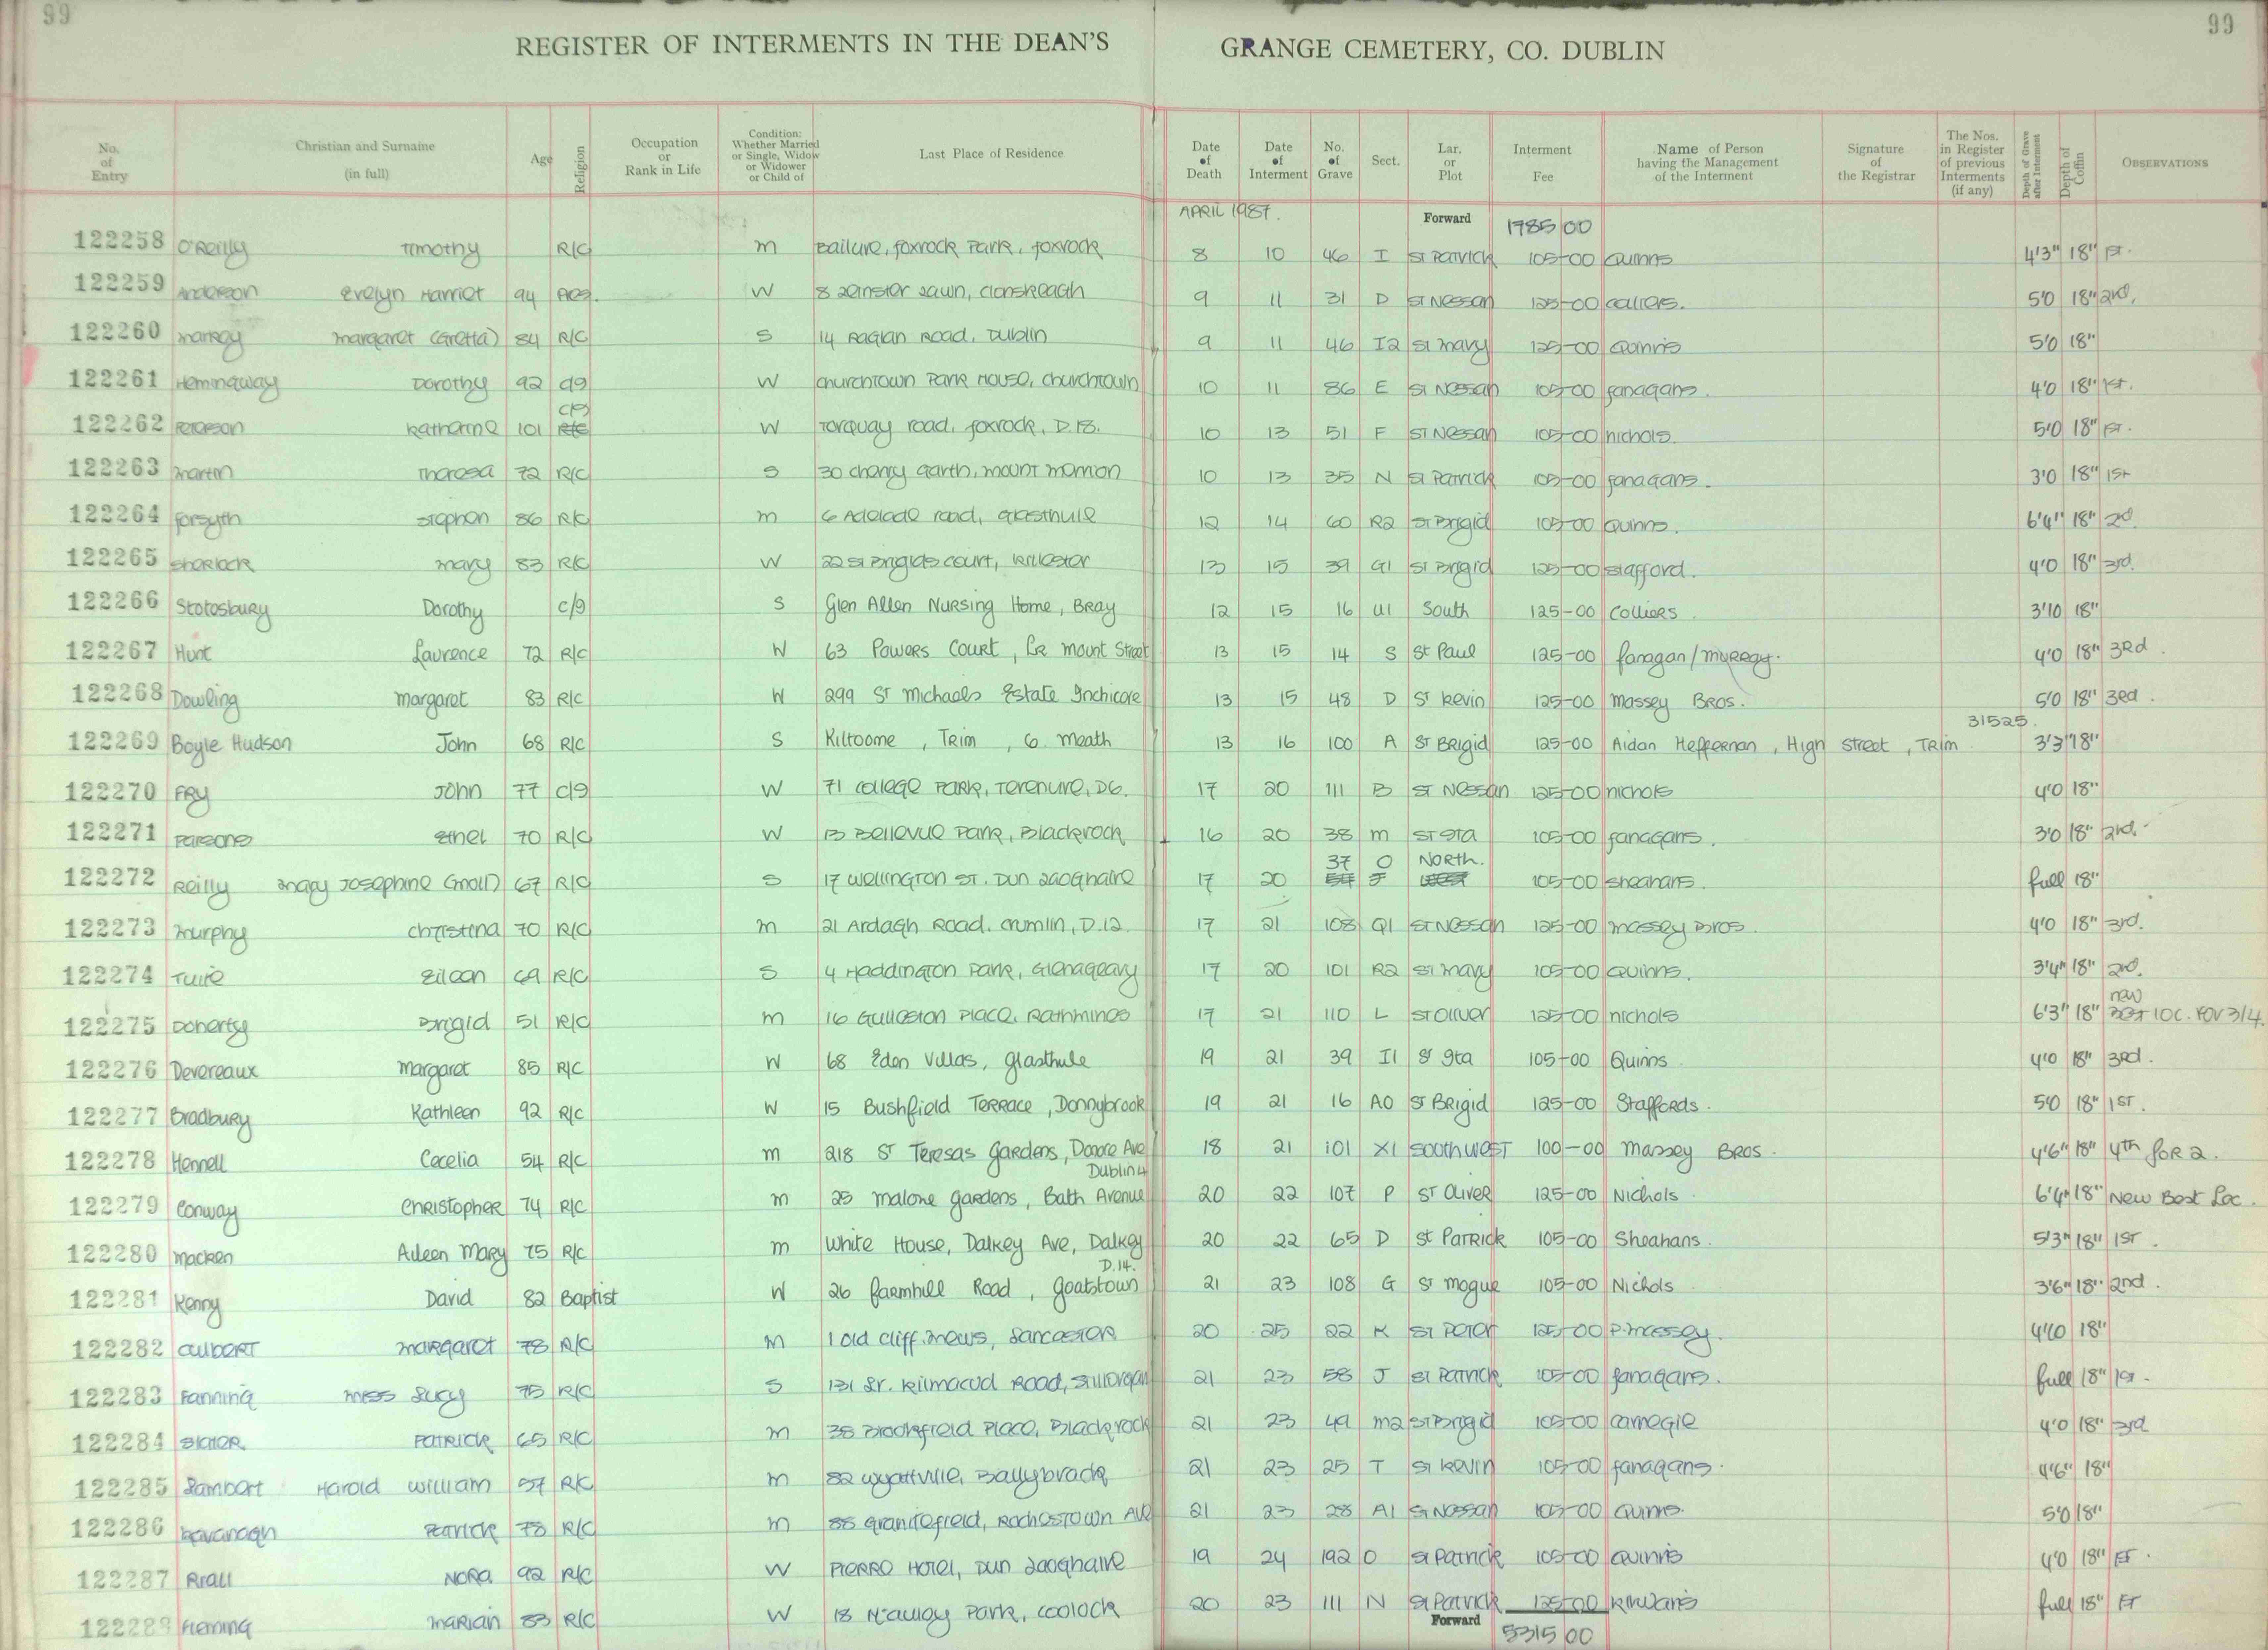 99
99
REGISTER OF INTERMENTS IN THE DEAN'S GRANGE CEMETERY, CO. DUBLIN
No. of Entry | Christian and Surname (in full) | Age | Religion | Occupation or Rank in Life | Condition: Whether Married or Single, Widow or Widower or Child of | Last Place of Residence | Date of Death | Date of Interment | No. of Grave | Sect. | Lar. or Plot | Interment Fee | Name of Person having the Management of the Interment | Signature of the Registrar | The Nos. in Register of previous Interments (if any) | Depth of Grave after Interment | Depth of Coffin | OBSERVATIONS
APRIL 1987. Forward 1785 00
122258 O'Reilly Timothy R/C m Ballure, foxrock Park, foxrock 8 10 46 I St Patrick 105-00 Quinns 4'3" 18" 1st.
122259 Anderson Evelyn Harriet 94 W 8 Leinster Lawn, Clonskeagh 9 11 31 D St Nessan 125-00 Colliers. 5'0 18" 2nd.
122260 Margaret (Gretta) 84 R/C S 14 Raglan Road, Dublin 9 11 46 I2 St Mary 125-00 Quinns 5'0 18"
122261 Hemingway Dorothy 92 C/9 W Churchtown Park House, Churchtown 10 11 86 E St Nessan 105-00 fanagans. 4'0 18" 1st.
122262 Katherine 101 C/9 R/C W Torquay road, foxrock, D.18. 10 13 51 F St Nessan 105-00 nichols. 5'0 18" 1st.
122263 Martin Theresa 72 R/C S 30 Cherry Garth, mount merrion 10 13 35 N St Patrick 105-00 fanagans. 3'0 18" 1st
122264 forsyth Stephen 86 R/C m 6 Adelaide road, Glasthule 12 14 60 R2 St Brigid 105-00 Quinns. 6'4" 18" 2d
122265 Sherlock mary 83 R/C W 22 St Brigids court, Killester 13 15 39 G1 St Brigid 125-00 Stafford. 4'0 18" 3rd.
122266 Stotesbury Dorothy C/9 S Glen Allen Nursing Home, Bray 12 15 16 U1 South 125-00 Colliers 3'10 18"
122267 Hunt Laurence 72 R/C W 63 Powers Court, Lr Mount Street 13 15 14 S St Paul 125-00 fanagan/murray. 4'0 18" 3rd
122268 Dowling Margaret 83 R/C W 299 St Michaels Estate Inchicore 13 15 48 D St Kevin 125-00 Massey Bros. 5'0 18" 3rd.
122269 Boyle Hudson John 68 R/C S Kiltoome, Trim, Co. Meath 13 16 100 A St Brigid 125-00 Aidan Heffernan, High Street, Trim 31525. 3'3" 18"
122270 FRY John 77 C/9 W 71 College Park, Terenure, D6. 17 20 111 B St Nessan 125-00 nichols 4'0 18"
122271 Parsons Ethel 70 R/C W 13 Bellevue Park, Blackrock 16 20 38 m St Ita 105-00 fanagans. 3'0 18" 2nd.
122272 Reilly Mary Josephine (Moll) 67 R/C S 17 Wellington St. Dun Laoghaire 17 20 37 O North. J West 105-00 Sheahans. full 18"
122273 Murphy Christina 70 R/C m 21 Ardagh Road, Crumlin, D.12. 17 21 108 Q1 St Nessan 125-00 Massey Bros. 4'0 18" 3rd.
122274 Tuite Eileen 69 R/C S 4 Haddington Park, Glenageary 17 20 101 R2 St Mary 105-00 Quinns. 3'4" 18" 2nd.
122275 Doherty Brigid 51 R/C m 16 Gulliston Place, Rathmines 17 21 110 L St Oliver 125-00 nichols 6'3" 18" new Best Loc. for 3/4.
122276 Devereaux Margaret 85 R/C W 68 Eden Villas, Glasthule 19 21 39 I1 St Ita 105-00 Quinns 4'0 18" 3rd.
122277 Bradbury Kathleen 92 R/C W 15 Bushfield Terrace, Donnybrook 19 21 16 AO St Brigid 125-00 Staffords. 5'0 18" 1st.
122278 Hennell Cecelia 54 R/C m 218 St Teresas Gardens, Donore Ave 18 21 101 X1 South West 100-00 Massey Bros. 4'6" 18" 4th for 2.
122279 Conway Christopher 74 R/C m 25 Malone Gardens, Bath Avenue Dublin 4 20 22 107 P St Oliver 125-00 Nichols 6'4" 18" New Best Loc.
122280 Macken Aileen Mary 75 R/C m White House, Dalkey Ave, Dalkey 20 22 65 D St Patrick 105-00 Sheahans. 5'3" 18" 1st.
122281 Kenny David 82 Baptist W 26 Farmhill Road, Goatstown D.14. 21 23 108 G St Mogue 105-00 Nichols 3'6" 18" 2nd.
122282 Culbert Margaret 78 R/C M 1 Old Cliff Mews, 20 25 22 K St Peter 125-00 P. Massey. 4'10 18"
122283 Fanning Miss Lucy 75 R/C S 131 Lr. Kilmacud Road, Stillorgan 21 23 58 J St Patrick 105-00 fanagans. full 18" 1st.
122284 Patrick 65 R/C m 38 Brookfield Place, Blackrock 21 23 49 M2 St Brigid 105-00 Carnegie 4'0 18" 3rd
122285 Lambert Harold William 57 R/C m 82 Wyattville, Ballybrack 21 23 25 T St Kevin 105-00 fanagans. 4'6" 18"
122286 Kavanagh Patrick 78 R/C m 88 Granitefield, Rochestown Ave 21 23 28 A1 St Nessan 105-00 Quinns. 5'0 18"
122287 Riall Nora 92 R/C W Pierre Hotel, Dun Laoghaire 19 24 192 O St Patrick 105-00 Quinns 4'0 18" 1st.
122288 Fleming Marian 83 R/C W 18 McAuley Park, Coolock 20 23 111 N St Patrick 125-00 Kirwans full 18" 1st
Forward 5315 00